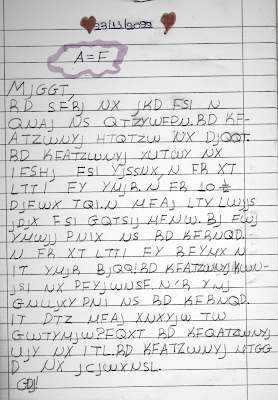 23/11/2022
A=F
MJQQT,
RD SFRJ NX JKD FSI N
QNAJ NS QTZYWFPN.RD KF-
ATZWNYJ HTQTZW NX DJQQT.
RD KFATZWNYJ XUTWY NX
IFSHJ FSI YJSSNX, N FR XT
LTTI FY YMJR.N FR 10 ½
DJFWX TQI.N MFAJ LTYLWJJS
JDJX FSI GQTSIJ MFNW. BJ FWJ
YMWJJ PNIX NS RD KFRNQD.
N FR XT LTTI FY RFYMX N
IT YMJR BJQQ!RD KFATZWNYJKWN-
JSI NX PFYJWNSF.N'R YMJ
GNLLJXY PNI NS RD KFRNQD.
IT DTZ MFAJ XNXYJW TW
GWTYMJW?FQXT RD KFQATZWNYJ
UJY NX ITL.RD KFATZWNYJ MTGG
D NX JCJWXNSL.
GDJ!